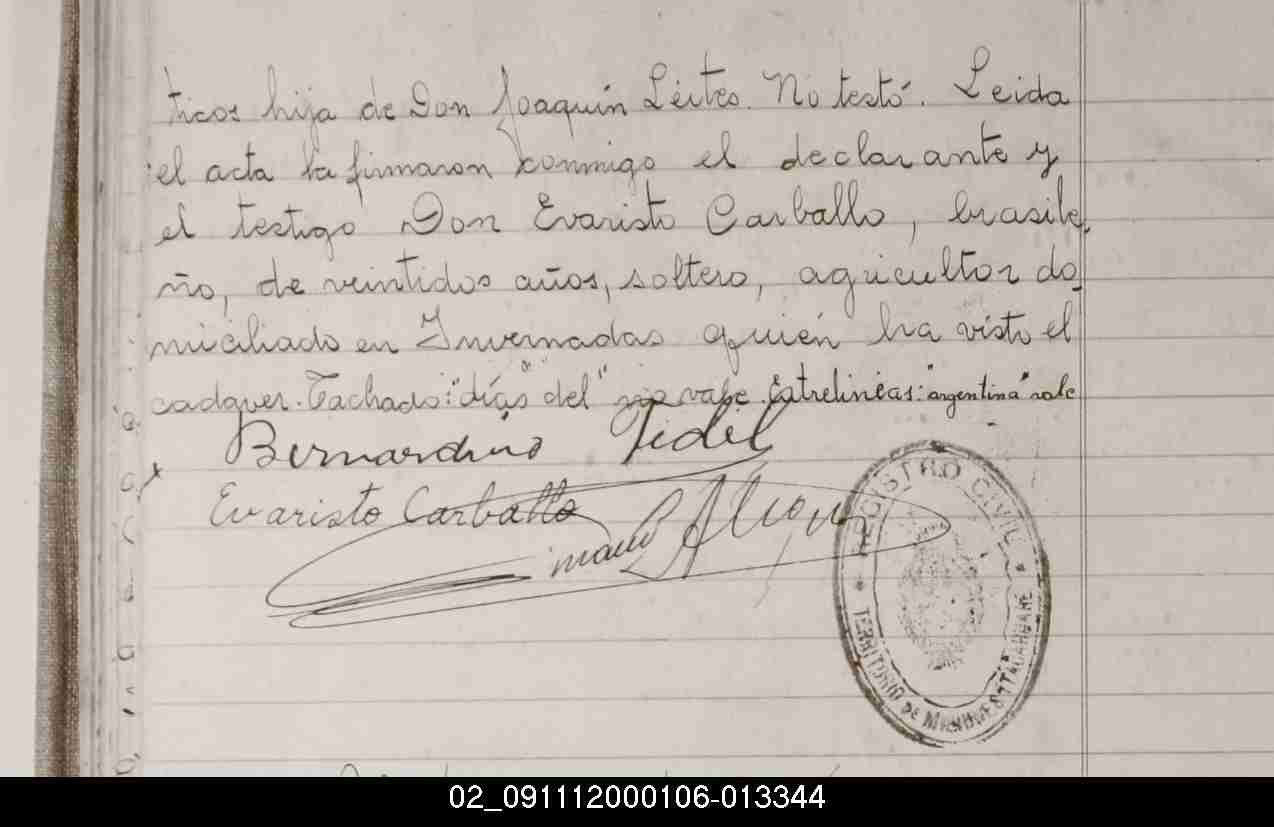 ticos hija de Don Joaquín Leites. No testó. Leida
el acta la firmaron conmigo el declarante y
el testigo Don Evaristo Carballo, brasile-
ño, de veintidos años, soltero, agricultor do-
miciliado en Invernadas quién ha visto el
cadaver. Tachado: "días" del" no vale. Entrelíneas: "argentina" vale
Bernardino Fidel
Evaristo Carballo
REGISTRO CIVIL
TERRITORIO DE MISIONES
02_091112000106-013344